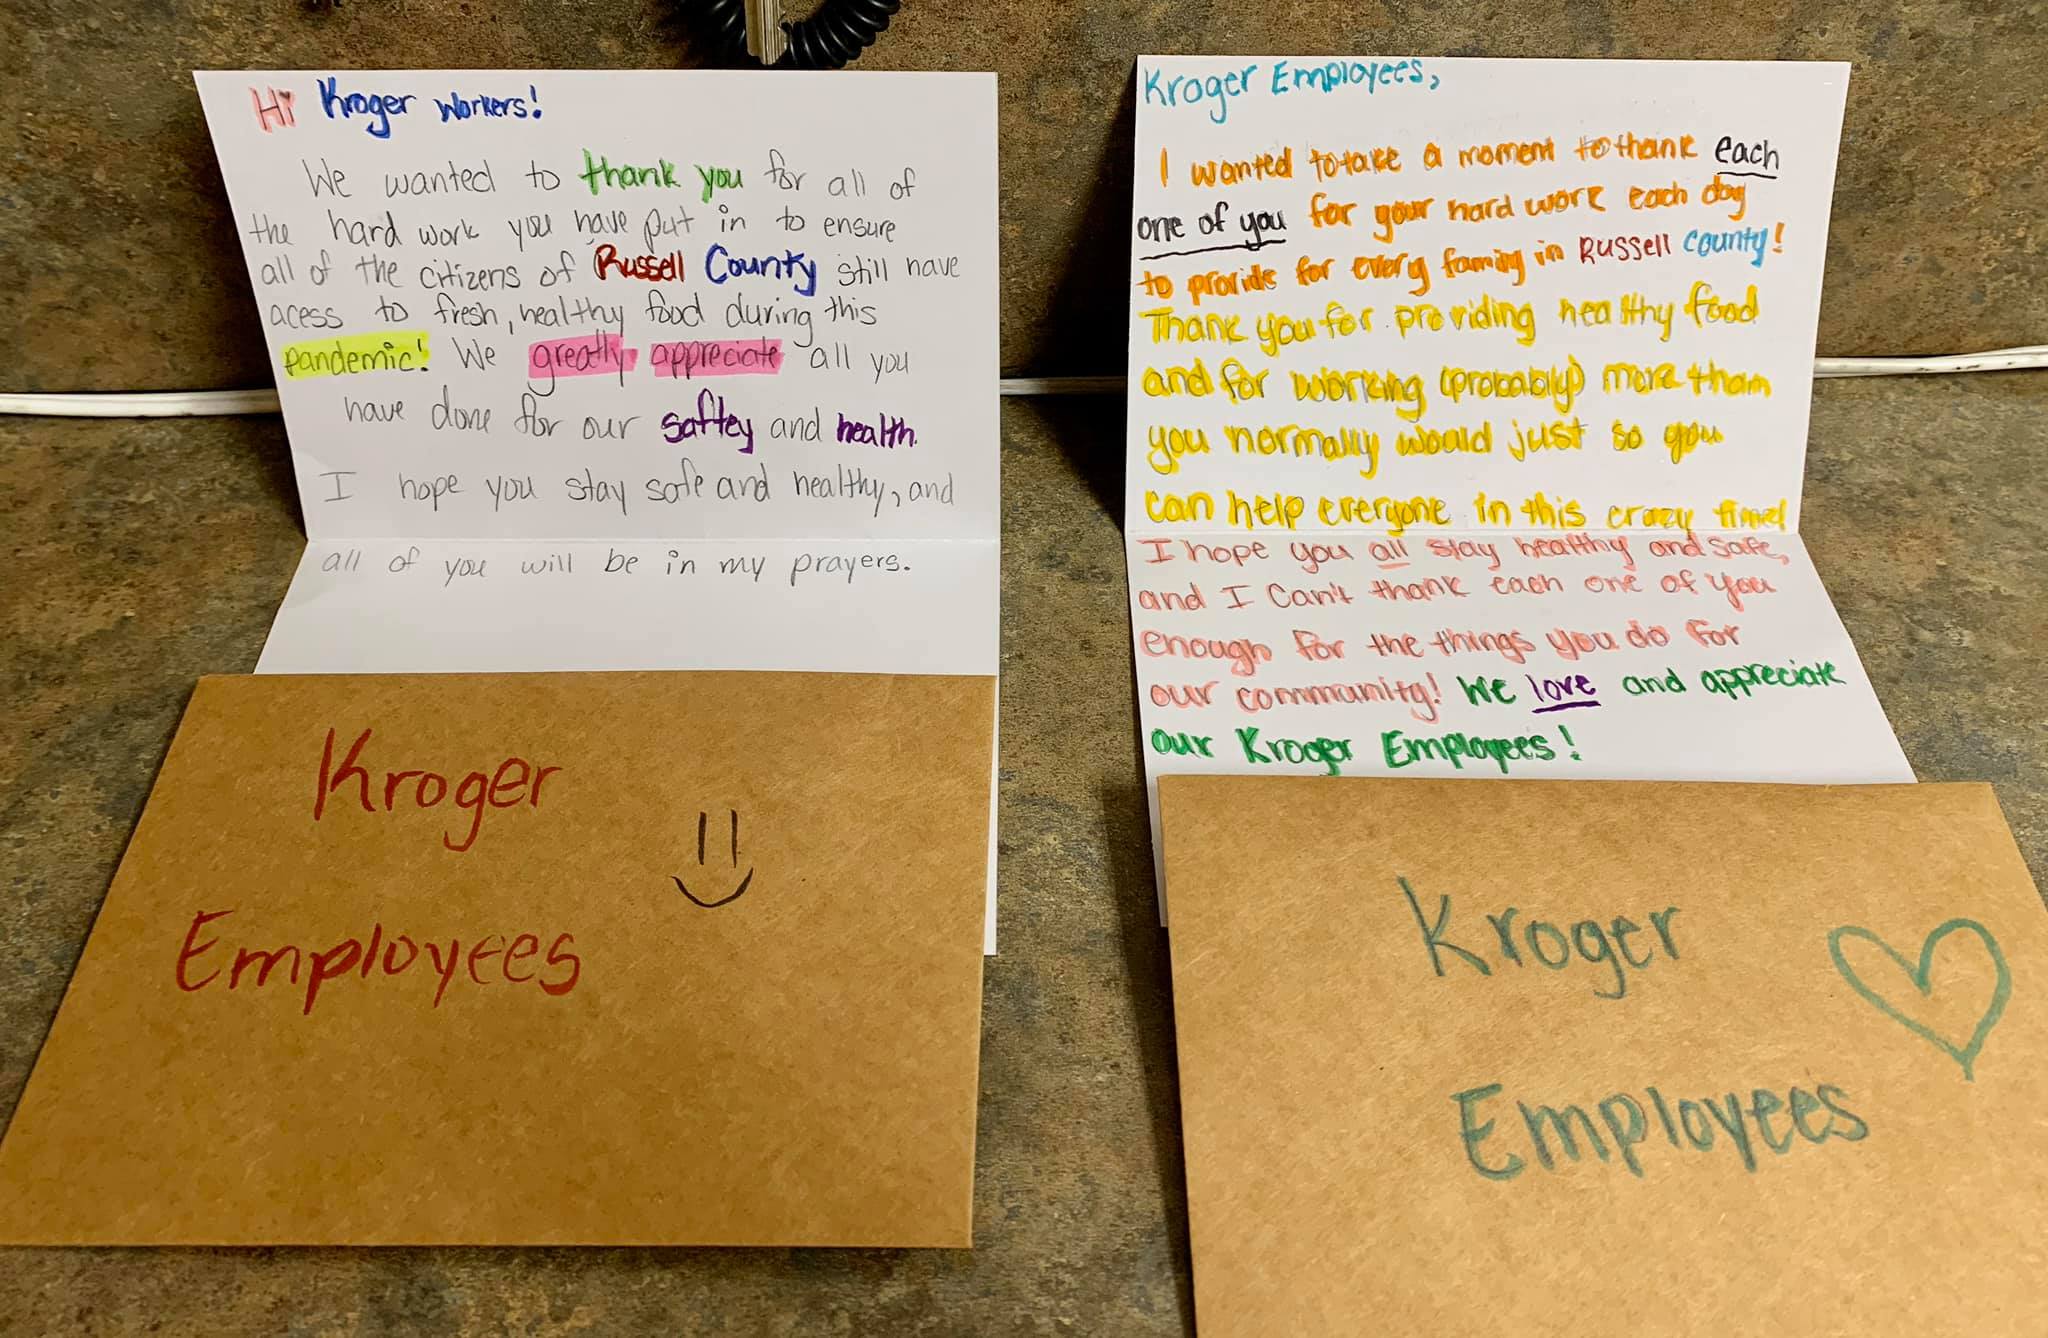 Hi Kroger workers!
We wanted to thank you for all of
the hard work you have put in to ensure
all of the citizens of Russell County still have
acess to fresh, healthy food during this
pandemic! We greatly appreciate all you
have done for our saftey and health.
I hope you stay safe and healthy, and
all of you will be in my prayers.
Kroger
Employees
Kroger Employees,
I wanted to take a moment to thank each
one of you for your hard work each day
to provide for every family in Russell County!
Thank you for providing healthy food
and for working (probably) more than
you normally would just so you
can help everyone in this crazy time!
I hope you all stay healthy and safe,
and I can't thank each one of you
enough for the things you do for
our community! We love and appreciate
our Kroger Employees!
Kroger
Employees